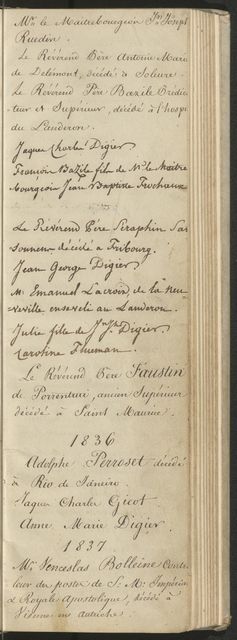 Mr. le Maitrebourgeois Jn. Joseph
Ruedin.
Le Révérend Père Antoine Marie
de Delémont, décédé à Soleure.
Le Révérend Père Bazile Prédica
teur & Supérieur, décédé à l'hospi
du Landeron.
Jaques Charles Digier
François Bazile fils de Mr. le Maitre
bourgeois Jean Baptiste Frochaux
Le Révérend Père Séraphin
décédé à Fribourg.
Jean George Digier
Mr. Emanuel Lacroix, de la Neu
veville enseveli au Landeron.
Julie fille de Digier
Caroline
Le Révérend Père Faustin
de Porrentrui, ancien Supérieur
décédé à Saint Maurice.
1836
Adolphe Perroset décédé
à Rio de Janeiro.
Jaques Charles Gicot
Anne Marie Digier.
1837
Mr. Venceslas Bolleine Contro
leur des postes de S. M. Impériale
& Royale Apostolique, décédé à
Vienne en Autriche.